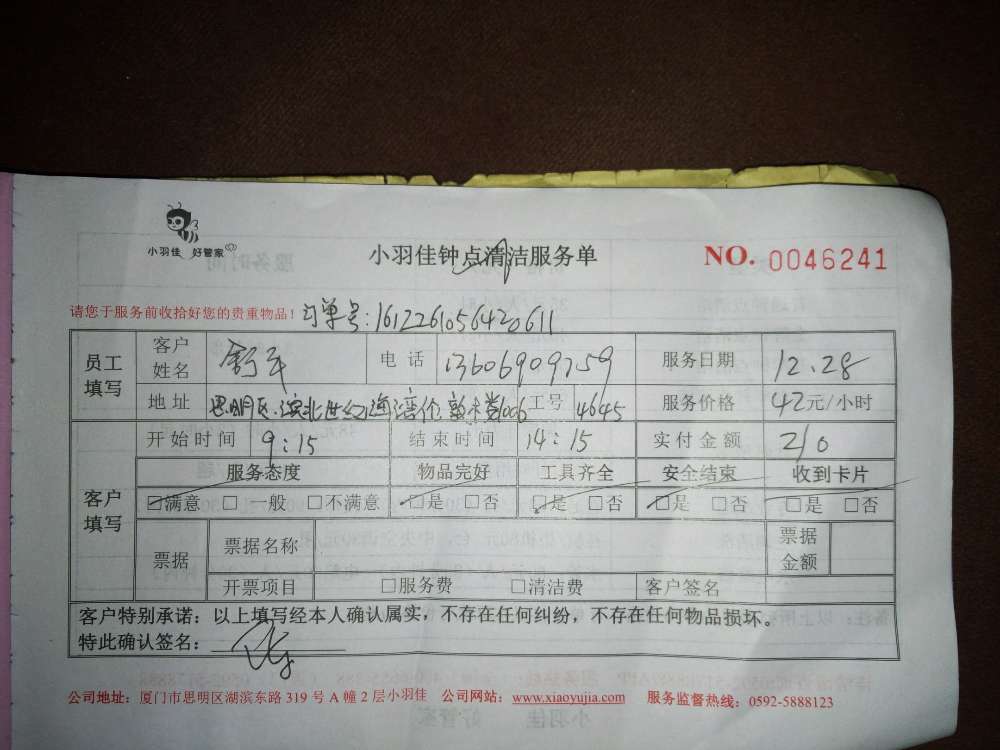 小羽佳 好管家
小羽佳钟点清洁服务单
NO. 0046241
请您于服务前收拾好您的贵重物品！订单号：1612261056420611
员工填写 客户姓名 舒平 电话 13606909759 服务日期 12.28
地址 思明区 滨北世纪 1006 工号 4645 服务价格 42元/小时
客户填写 开始时间 9:15 结束时间 14:15 实付金额 210
服务态度 物品完好 工具齐全 安全结束 收到卡片
☑满意 □一般 □不满意 ☑是 □否 ☑是 □否 ☑是 □否 ☑是 □否
票据 票据名称 票据金额
开票项目 □服务费 □清洁费 客户签名
客户特别承诺：以上填写经本人确认属实，不存在任何纠纷，不存在任何物品损坏。
特此确认签名：
公司地址：厦门市思明区湖滨东路 319 号 A 幢 2 层小羽佳 公司网站：www.xiaoyujia.com 服务监督热线：0592-5888123